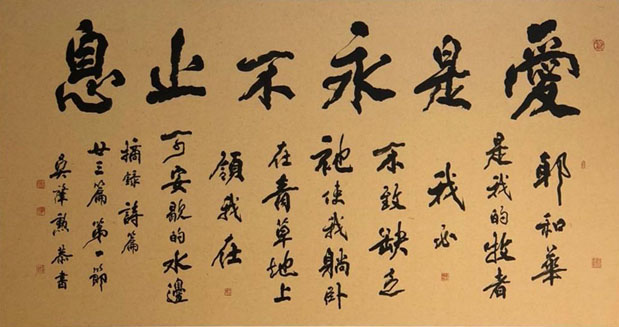 愛是永不止息
耶和華
是我的牧者
我必
不致缺乏
祂使我躺臥
在青草地上
領我在
可安歇的水邊
摘錄詩篇
廿三篇第一節
吳恭書